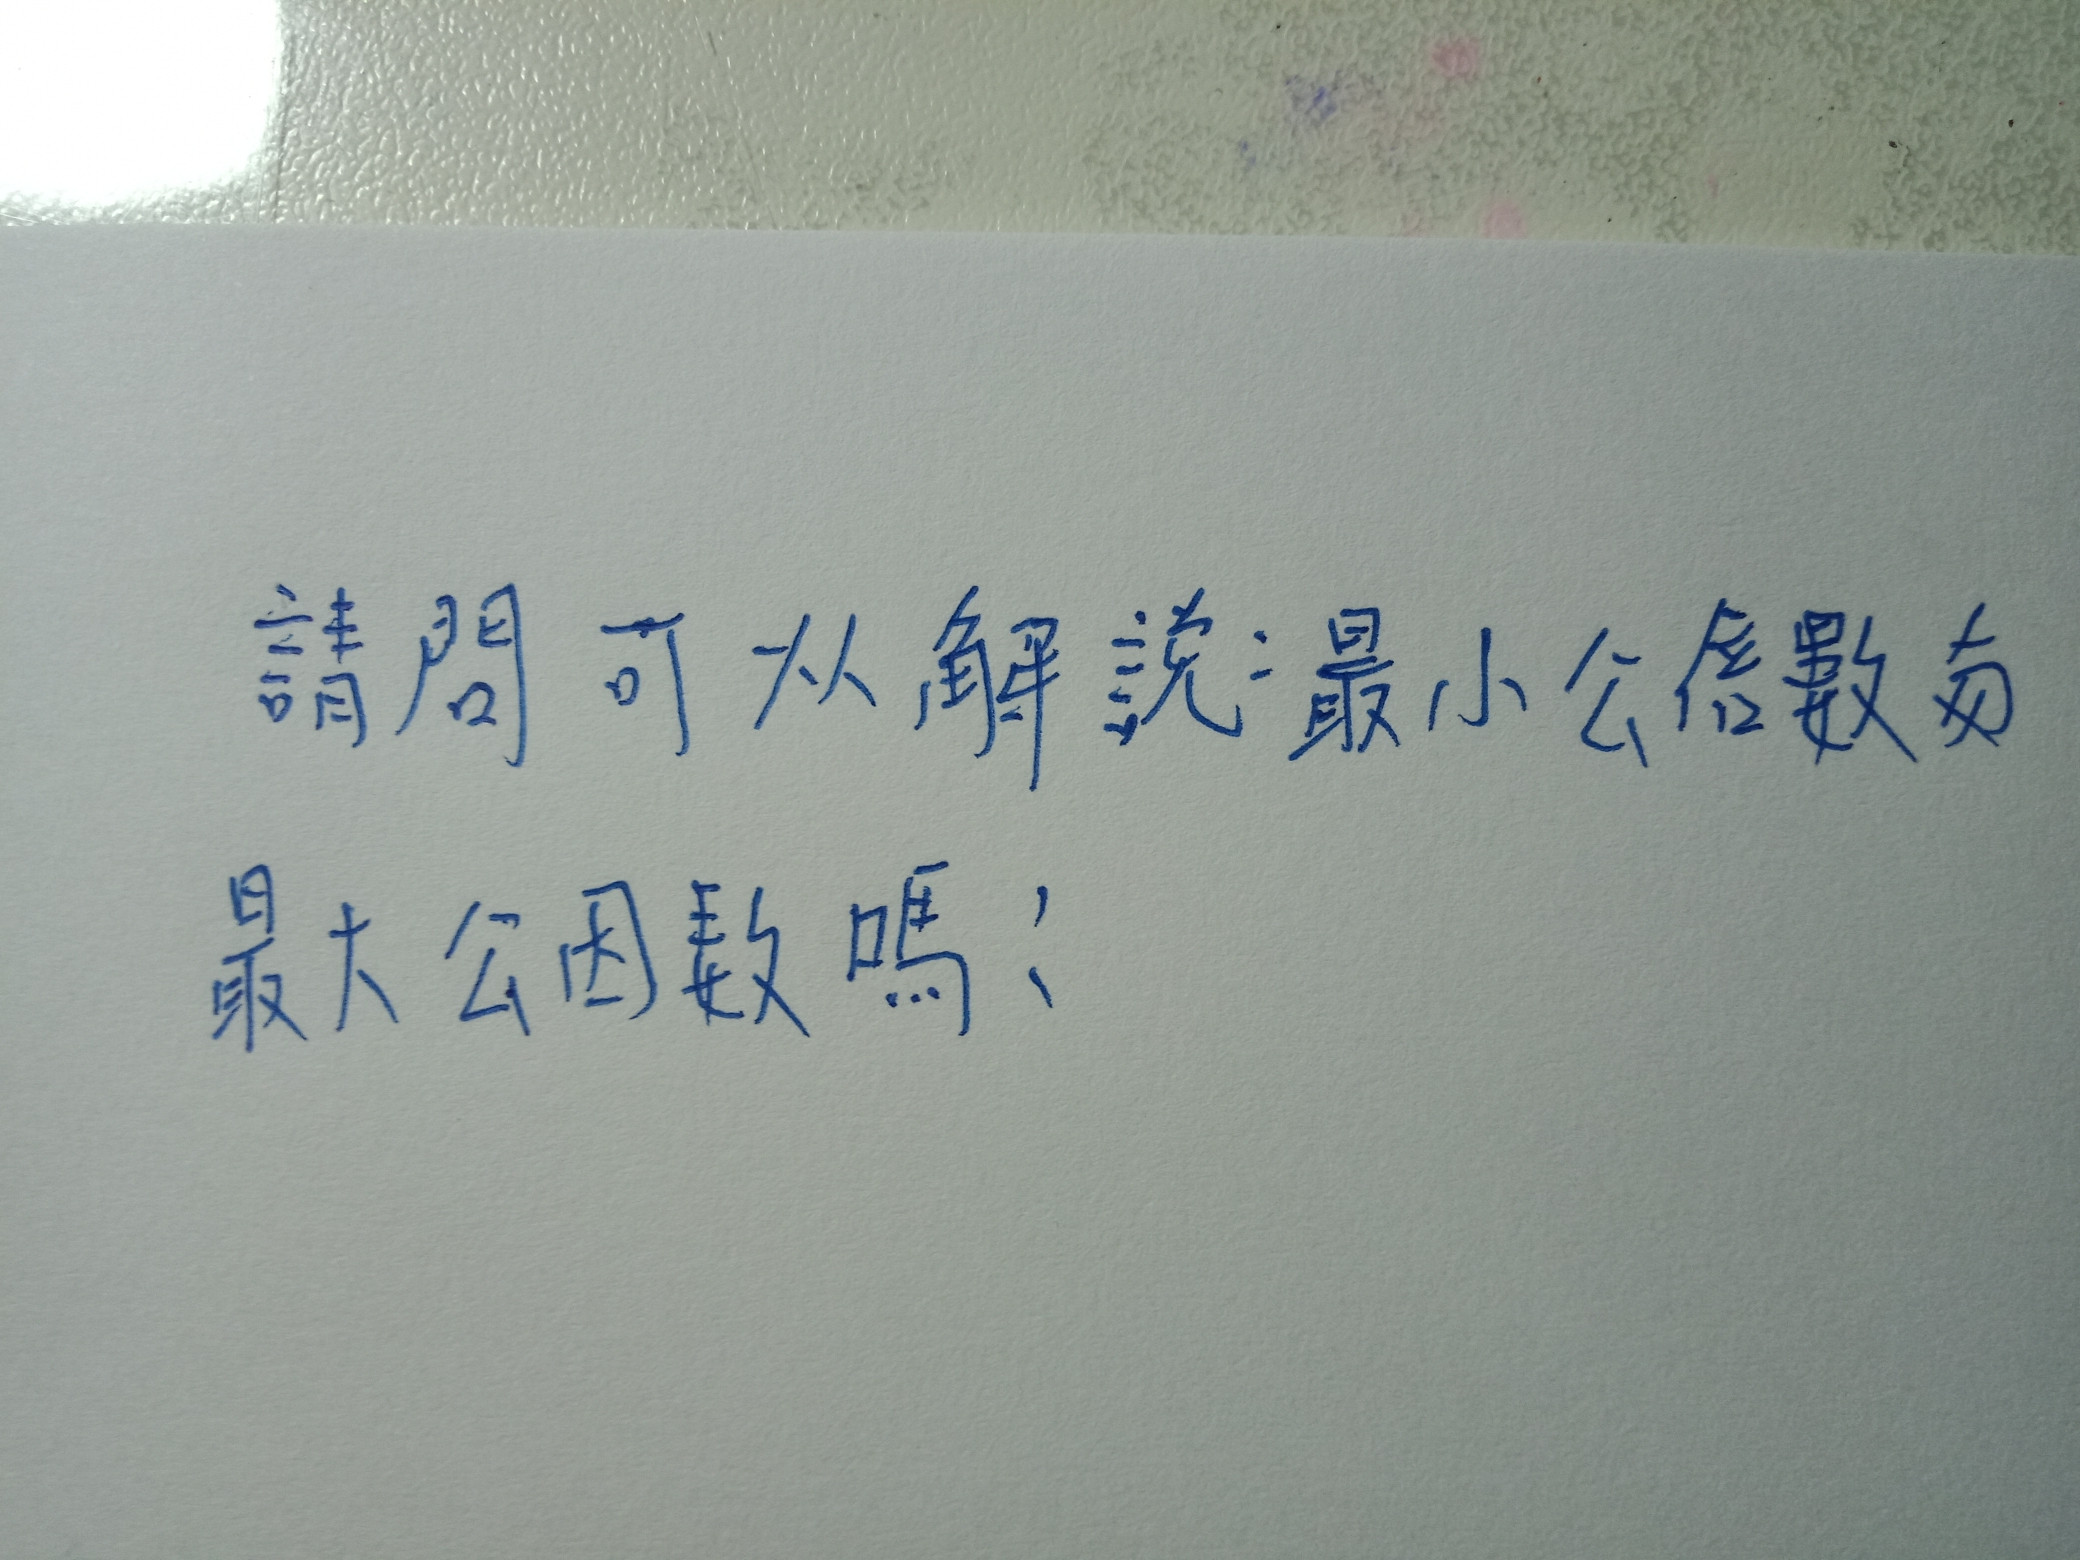 請問可以解說:最小公倍數与
最大公因數嗎?